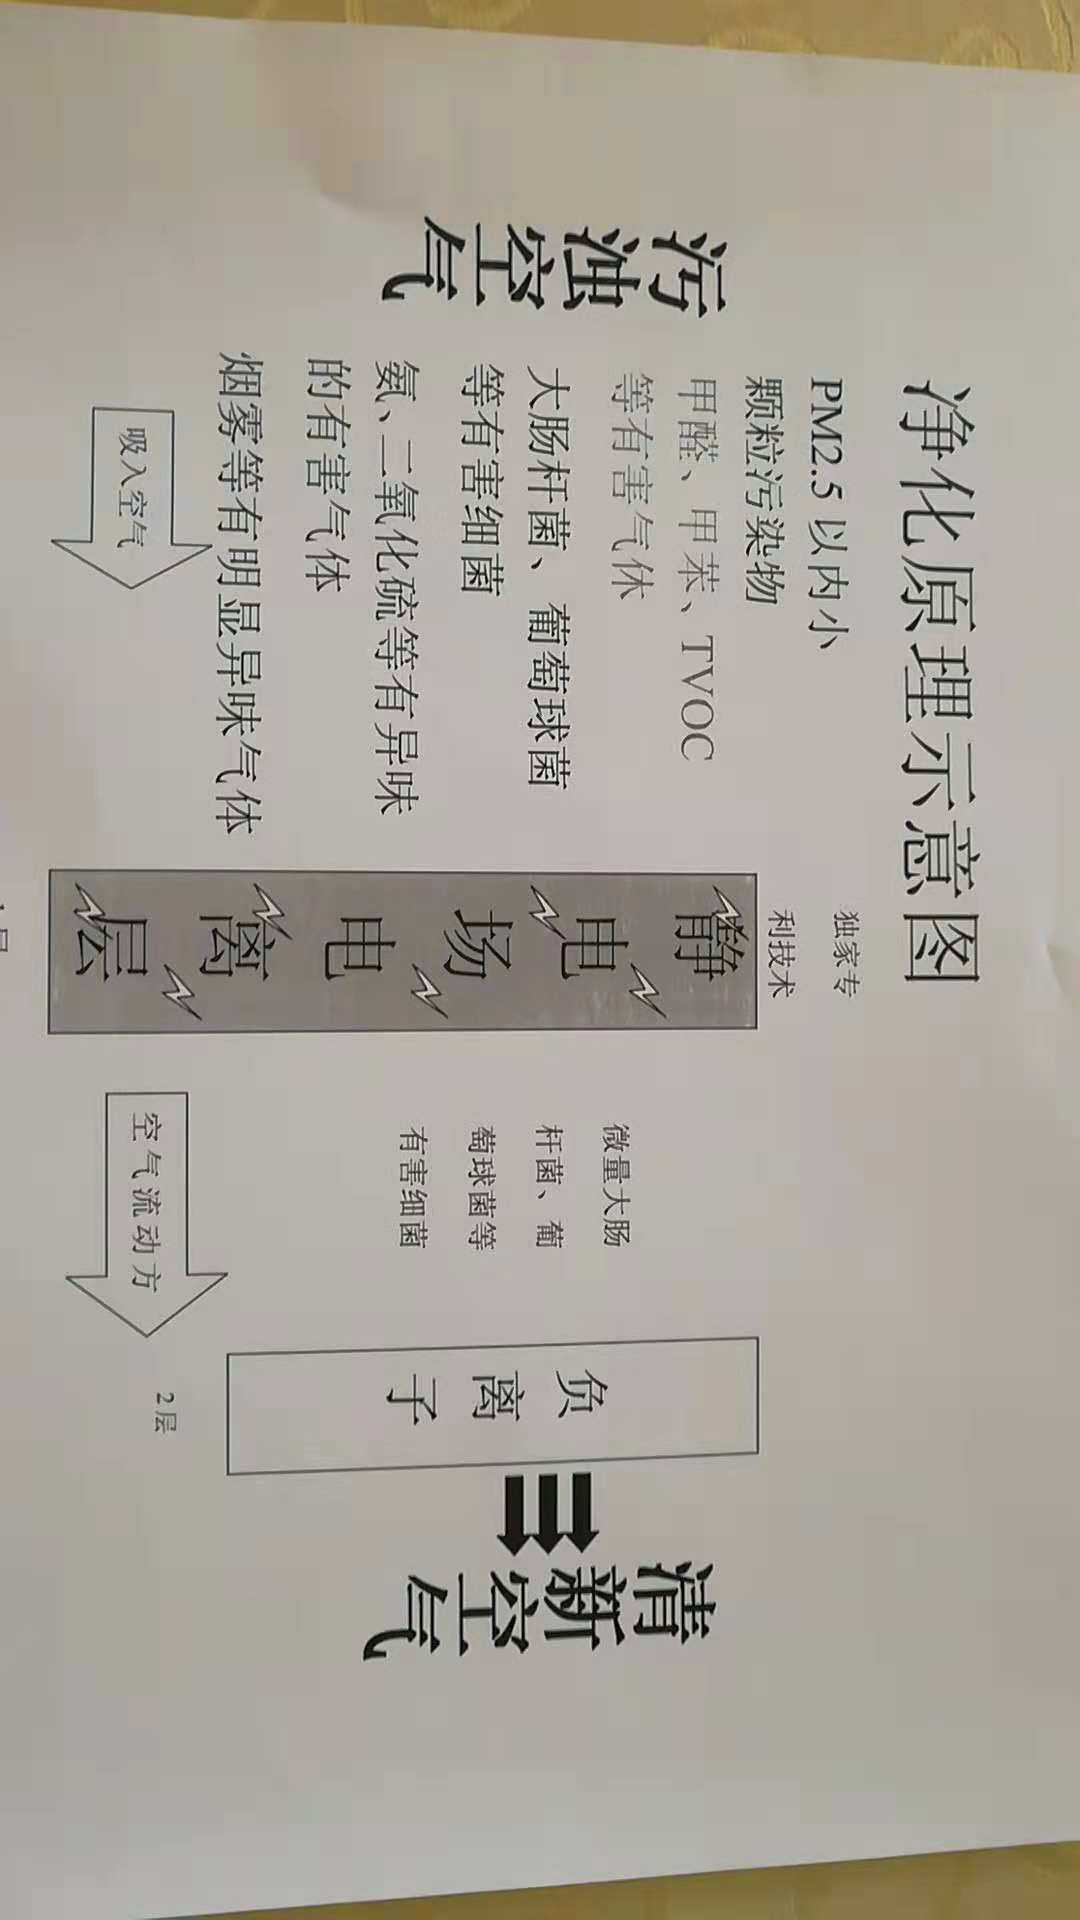 净化原理示意图
独家专
利技术
污浊空气
PM2.5 以内小
颗粒污染物
甲醛、甲苯、TVOC
等有害气体
大肠杆菌、葡萄球菌
等有害细菌
氨、二氧化硫等有异味
的有害气体
烟雾等有明显异味气体
吸入空气
静电场电离层
微量大肠
杆菌、葡
萄球菌等
有害细菌
空气流动方
负离子
2层
清新空气